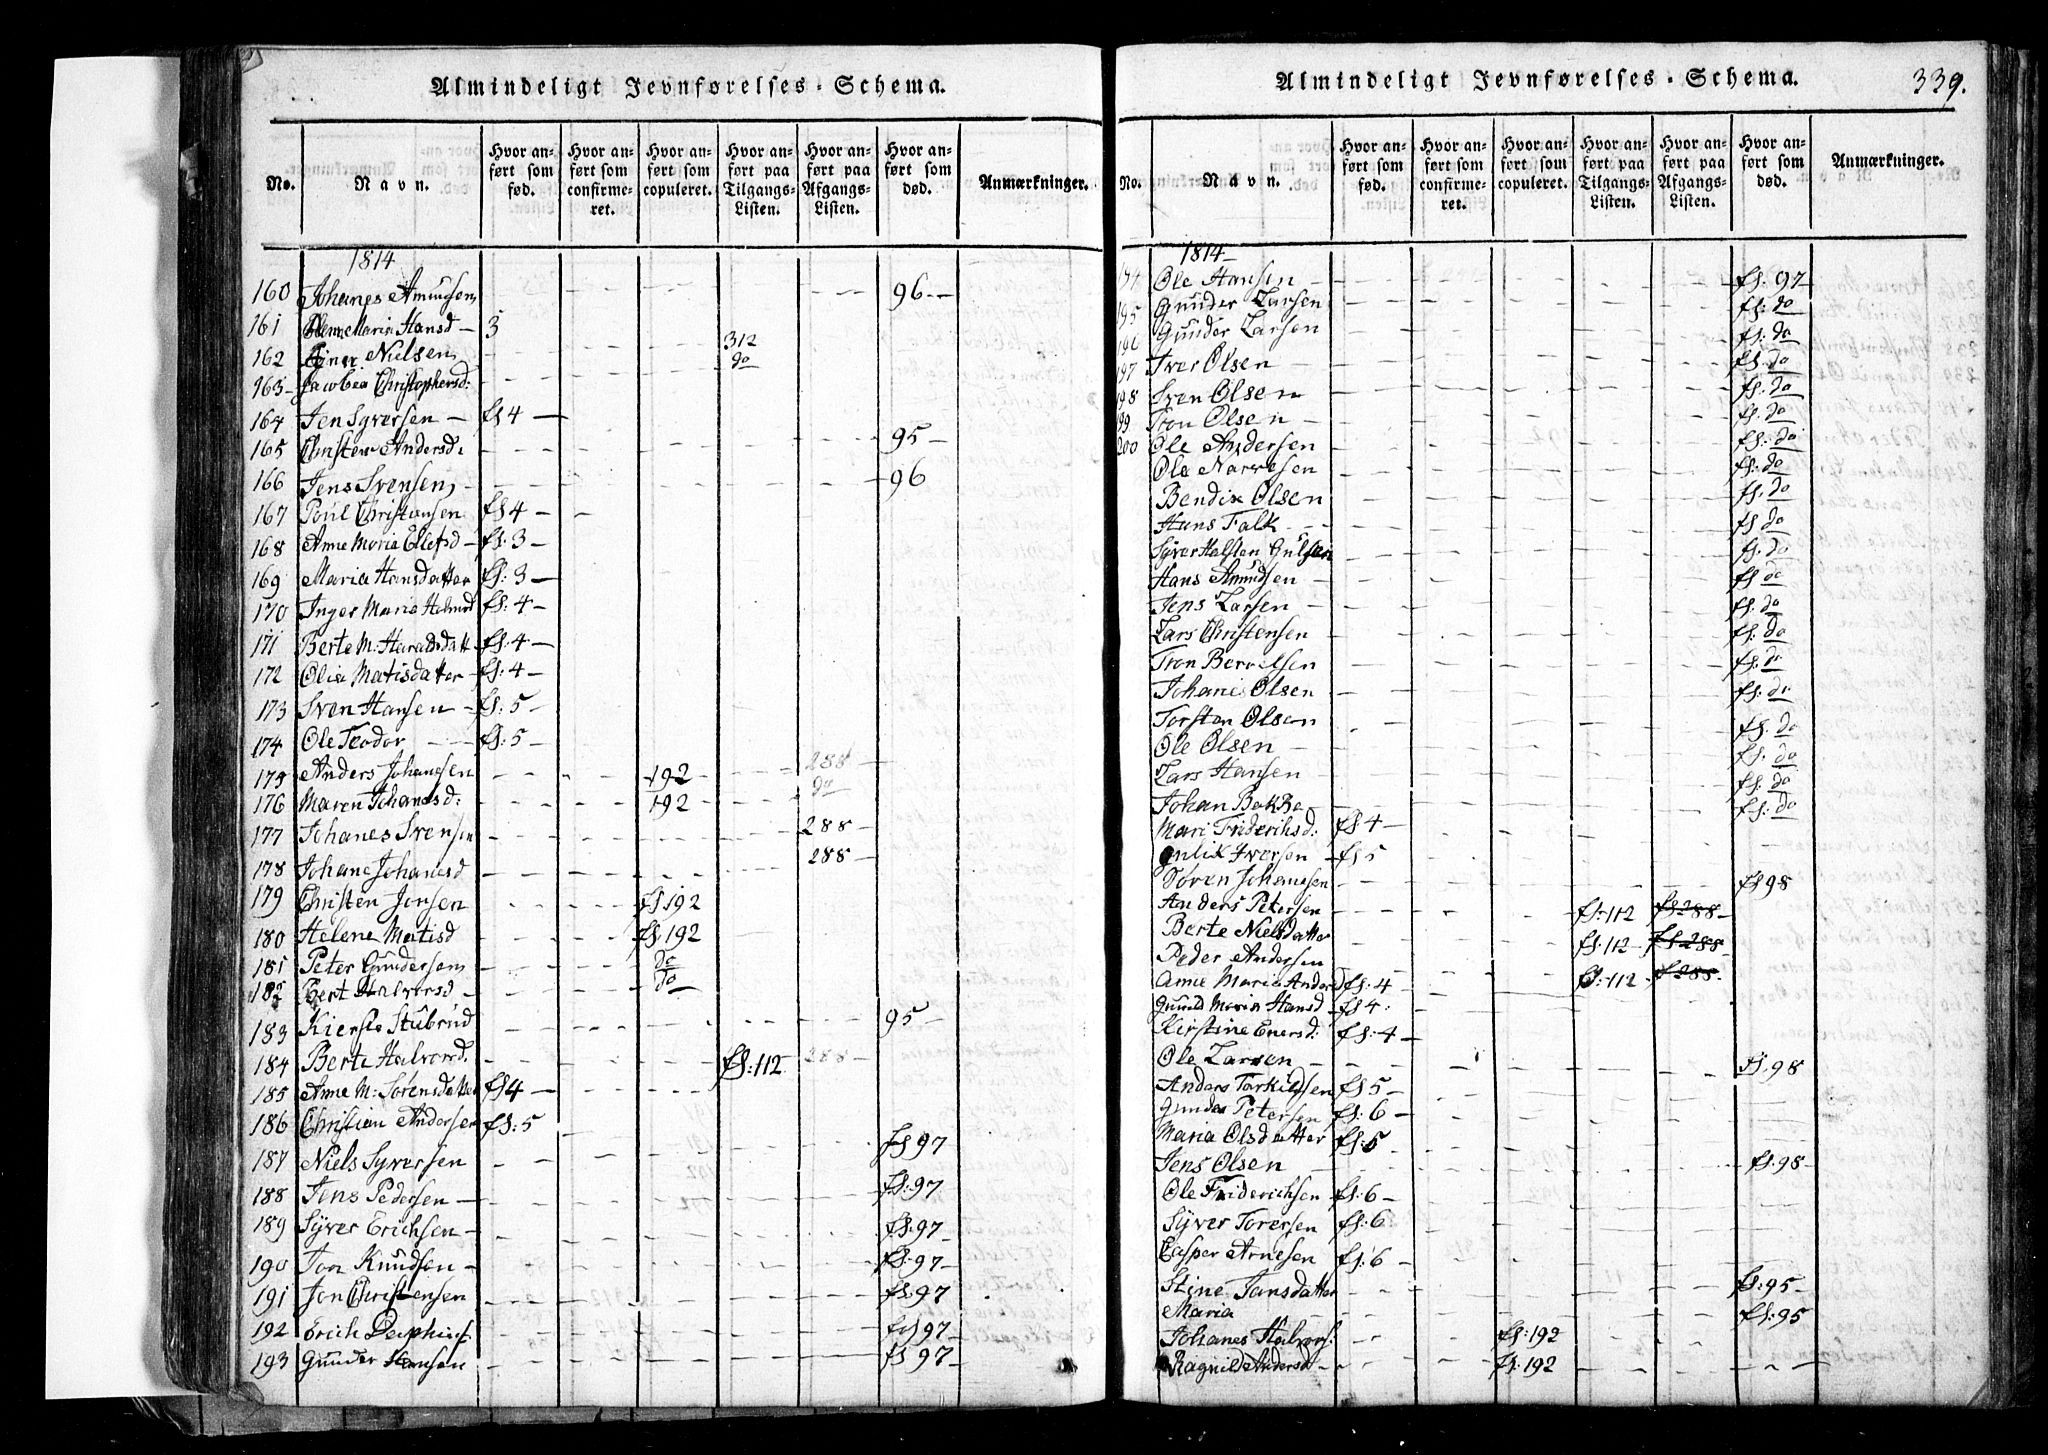 Almindeligt Jevnførelses-Schema.
No. Navn. Hvor anført som fød. Hvor anført som confirmeret. Hvor anført som copuleret. Hvor anført paa Tilgangs-Listen. Hvor anført paa Afgangs-Listen. Hvor anført som død. Anmærkninger.
1814
160 Johanes Amundsen 96
161 Maria Hansd 3
162 Nielsen 312
163 Jacobea Christophersd: do
164 Jen Syversen fS 4
165 Christen Andersd: 95
166 Jens Svensen 96
167 Poul Christiansen fS 4
168 Anne Maria Ellefsd fS: 3
169 Maria Hansdatter fS: 3
170 Inger Maria fS: 4
171 Berte M: fS: 4
172 Olia Matisdatter fS: 4
173 Sven Hansen fS: 5
174 Ole Teodor fS: 5
175 Anders Johanesen 192 288
176 Maren Johanesd: 192 do
177 Johanes Svensen 288
178 Johane Johanesd 288
179 Christen Jensen fS 192
180 Helene Matisd fS 192
181 Peter Gundersen do
182 Bert Halvorsd do
183 Kierste Stubrud 95
184 Berte Halvord. fS: 112 288
185 Anne M: Sørensdatter fS 4
186 Christian Andersen fS: 5
187 Niels Syversen fS 97
188 Jens Pedersen fS: 97
189 Syver Erichsen fS: 97
190 Tor Knudsen fS: 97
191 Jon Christensen fS: 97
192 Erich fS 97
193 Gunder Hansen fS 97
Almindeligt Jevnførelses-Schema. 339.
No. Navn. Hvor anført som fød. Hvor anført som confirmeret. Hvor anført som copuleret. Hvor anført paa Tilgangs-Listen. Hvor anført paa Afgangs-Listen. Hvor anført som død. Anmærkninger.
1814
194 Ole Hansen fS. 97
195 Gunder Larsen fS: do
196 Gunder Larsen fS: do
197 Iver Olsen fS: do
198 Sven Olsen fS: do
199 Tron Olsen fS: do
200 Ole Andersen fS: do
Ole Narvesen fS: do
Bendix Olsen fS: do
Hans Falk fS do
Syver Halsten fS: do
Hans Amundsen fS do
Jens Larsen fS: do
Lars Christensen fS: do
Tron fS: do
Johanes Olsen fS: do
Torsten Olsen fS: do
Ole Olsen fS: do
Lars Hansen fS: do
Johan Bakke fS: do
Mari Friderichsd: fS 4
Gulik Iversen fS 5
Søren Johanesen fS 98
Anders Petersen fS: 112 fS 288
Berte Nielsdatter fS: 112 fS 288
Peder Andersen fS: 112 fS 288
Anne Maria Andersd fS: 4
Gunild Maria Hansd fS 4:
Kirstine Enersd: fS: 4
Ole Larsen fS. 98
Anders Tarkildsen fS 5
Gunder Petersen fS: 6
Maria Olsdatter fS: 5
Jens Olsen fS: 98
Ole Friderichsen fS: 6
Syver Toresen fS: 6
Casper Arnesen fS: 6
Stine Jansdatter fS: 95
Maria fS: 95
Johanes Halvors: fS: 192
Ragnild Andersd fS: 192